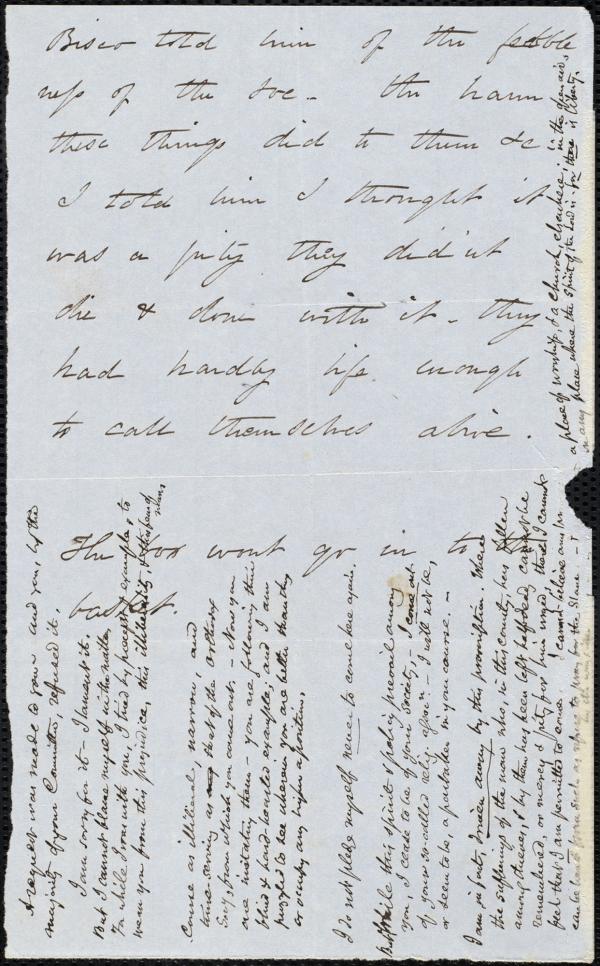 Bisco told him of the feeble
ness of the Soc - the harm
these things did to them &c.
I told him I thought it
was a pity they did'nt
die & done with it - they
had hardly life enough
to call themselves alive.
The box wont go in to the
basket.
A request was made to your - and you, by the
majority of your Committee, refused it.
I am sorry for it - I lament it.
But I cannot blame myself in the matter.
While I was with you, I tried by precept & example, to
wean you from this prejudice, this illiberality, &
Course as illiberal, narrow, and
time-serving as that of the orthodox
from which you came out. - Now you
are imitating them - you are following their
blind & hard hearted example; and I am
puzzled to see wherein you are better than they
or occupy any higher position.
I do not pledge myself never to come here again.
But while this spirit & policy prevail among
you, I cease to be of your Society, - I come out
of your so-called relig. - I will not be,
or seem to be, a partaker in your course. -
I am in fact, driven away by this proscription. Where
the sufferings of the man who, in this country, has fallen
among thieves, & by them has been left half dead, cannot be
remembered, or mercy & pity for him urged, there I cannot
feel that I am permitted to come. I cannot believe any
can be such as refuse to pray for the Slave. - I
a place of worship, & a church, elsewhere; in the open air,
in any place where the Spirit of the Lord is for there is liberty.